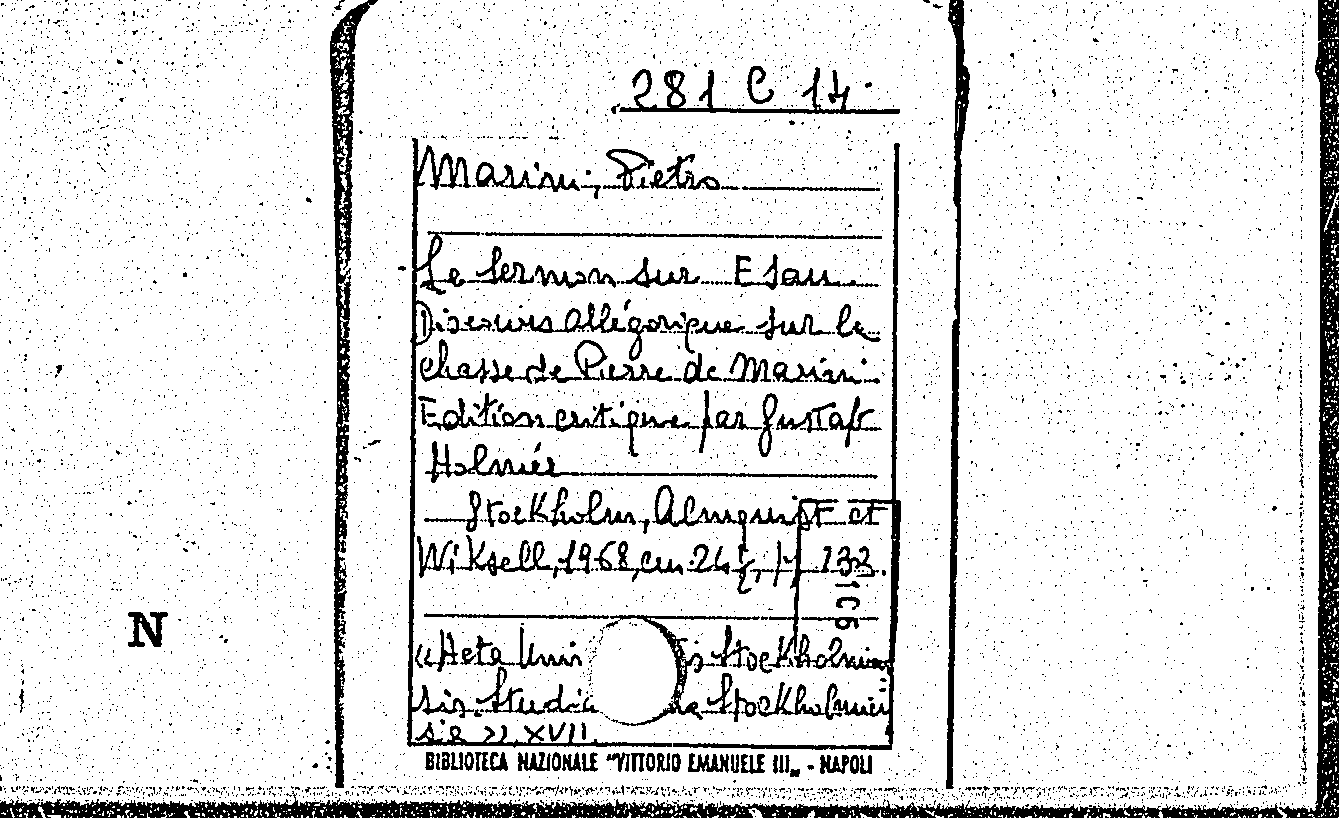 281 C 14.
Marini, Pietro
Le Sermon sur Esau.
Discours allégorique sur la
chasse de Pierre de Marini.
Edition critique par Gustaf
Holmér
Stockholm, Almquist et
Wiksell, 1968, cm. 24, p. 132.
"Acta Uni s Stockholmien
sis. Studia Stockholmien
sia" XVII.
BIBLIOTECA NAZIONALE "VITTORIO EMANUELE III„ - NAPOLI
N